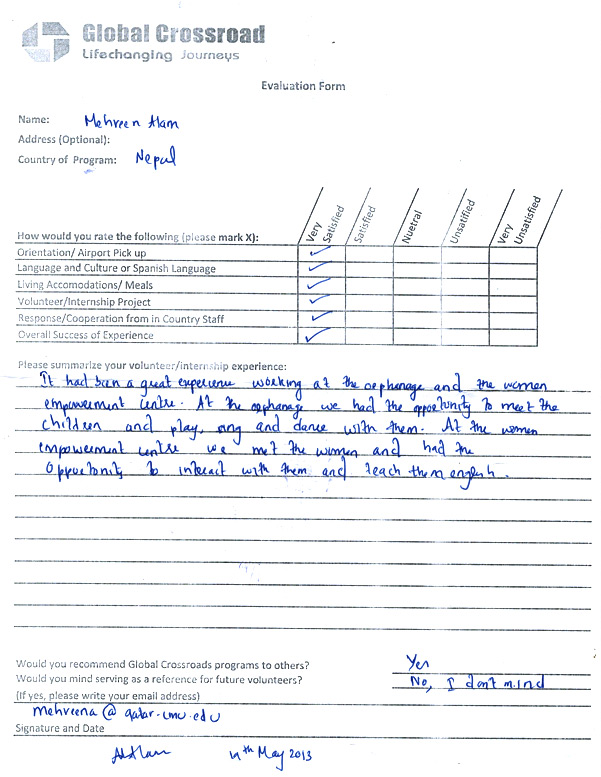 Global Crossroad
Lifechanging Journeys
Evaluation Form
Name: Mehreen Alam
Address (Optional):
Country of Program: Nepal
How would you rate the following (please mark X): Very Satisfied Satisfied Nuetral Unsatified Very Unsatisfied
Orientation/ Airport Pick up ✓
Language and Culture or Spanish Language ✓
Living Accomodations/ Meals ✓
Volunteer/Internship Project ✓
Response/Cooperation from in Country Staff ✓
Overall Success of Experience ✓
Please summarize your volunteer/internship experience:
It had been a great experience working at the orphanage and the women
empowerment centre. At the orphanage we had the opportunity to meet the
children and play, sing and dance with them. At the women
empowerment centre we met the women and had the
opportunity to interact with them and teach them english.
Would you recommend Global Crossroads programs to others? Yes
Would you mind serving as a reference for future volunteers? No, I don't mind
(If yes, please write your email address)
mehreena@qatar.cmu.edu
Signature and Date
May 2013